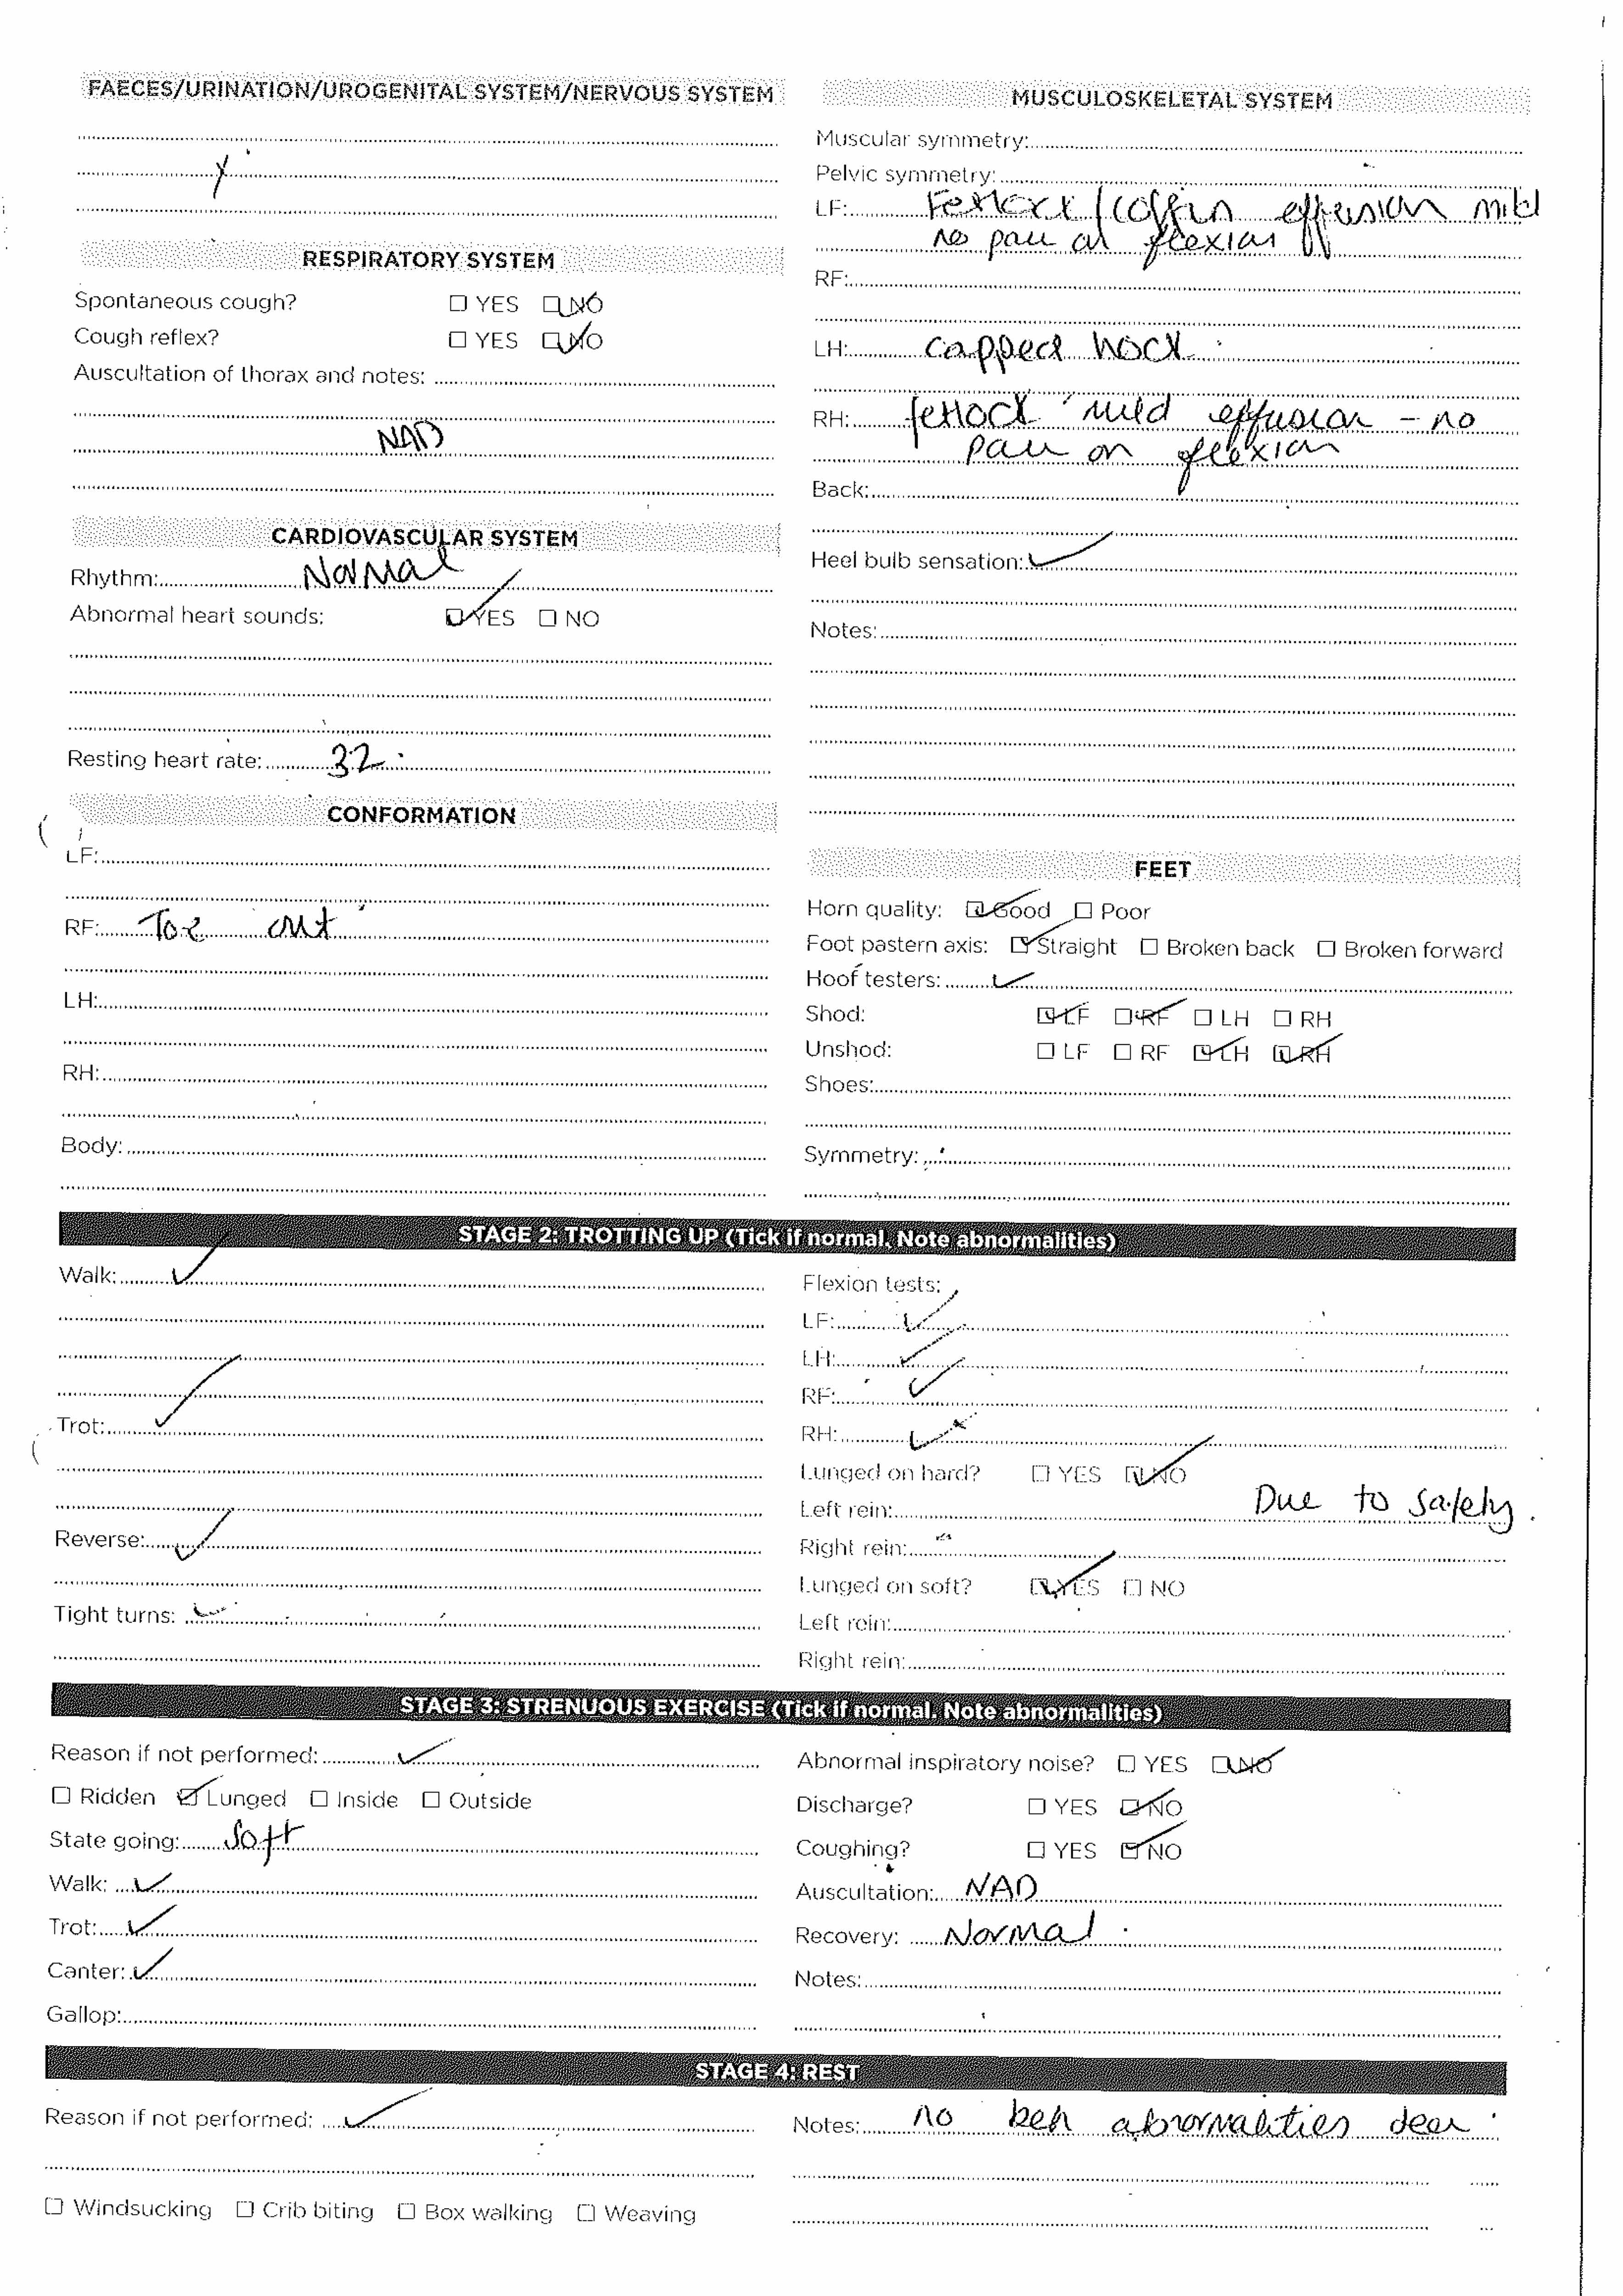 FAECES/URINATION/UROGENITAL SYSTEM/NERVOUS SYSTEM
RESPIRATORY SYSTEM
Spontaneous cough? ☐ YES ☑ NO
Cough reflex? ☐ YES ☑ NO
Auscultation of thorax and notes:
NAD
CARDIOVASCULAR SYSTEM
Rhythm: Normal
Abnormal heart sounds: ☑ YES ☐ NO
Resting heart rate: 32
CONFORMATION
LF:
RF: Toe out
LH:
RH:
Body:
MUSCULOSKELETAL SYSTEM
Muscular symmetry:
Pelvic symmetry:
LF: Fetlock / coffin effusion mild
no pain on flexion
RF:
LH: capped hock
RH: fetlock mild effusion - no
pain on flexion
Back:
Heel bulb sensation: ✓
Notes:
FEET
Horn quality: ☑ Good ☐ Poor
Foot pastern axis: ☑ Straight ☐ Broken back ☐ Broken forward
Hoof testers: ✓
Shod: ☑ LF ☑ RF ☐ LH ☐ RH
Unshod: ☐ LF ☐ RF ☑ LH ☑ RH
Shoes:
Symmetry:
STAGE 2: TROTTING UP (Tick if normal. Note abnormalities)
Walk: ✓
Trot: ✓
Reverse: ✓
Tight turns: ✓
Flexion tests:
LF: ✓
LH: ✓
RF: ✓
RH: ✓
Lunged on hard? ☐ YES ☑ NO
Left rein: Due to safety.
Right rein:
Lunged on soft? ☑ YES ☐ NO
Left rein:
Right rein:
STAGE 3: STRENUOUS EXERCISE (Tick if normal. Note abnormalities)
Reason if not performed: ✓
☐ Ridden ☑ Lunged ☐ Inside ☐ Outside
State going: Soft
Walk: ✓
Trot: ✓
Canter: ✓
Gallop:
Abnormal inspiratory noise? ☐ YES ☑ NO
Discharge? ☐ YES ☑ NO
Coughing? ☐ YES ☑ NO
Auscultation: NAD
Recovery: Normal.
Notes:
STAGE 4: REST
Reason if not performed: ✓
☐ Windsucking ☐ Crib biting ☐ Box walking ☐ Weaving
Notes: no beh abnormalities